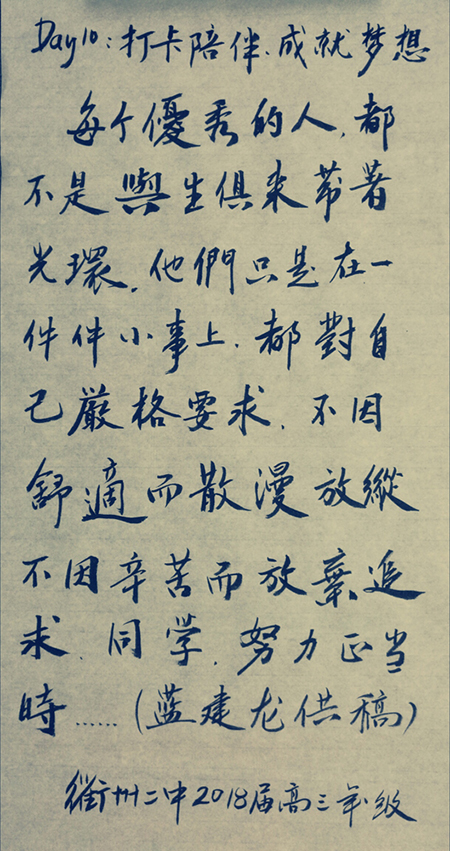 Day10:打卡陪伴、成就梦想
每个優秀的人,都
不是與生俱来带著
光環,他們只是在一
件件小事上,都對自
己嚴格要求,不因
舒適而散漫放縱
不因辛苦而放棄追
求,同学,努力正当
時……(蓝建龙供稿)
衢州二中2018届高三年级